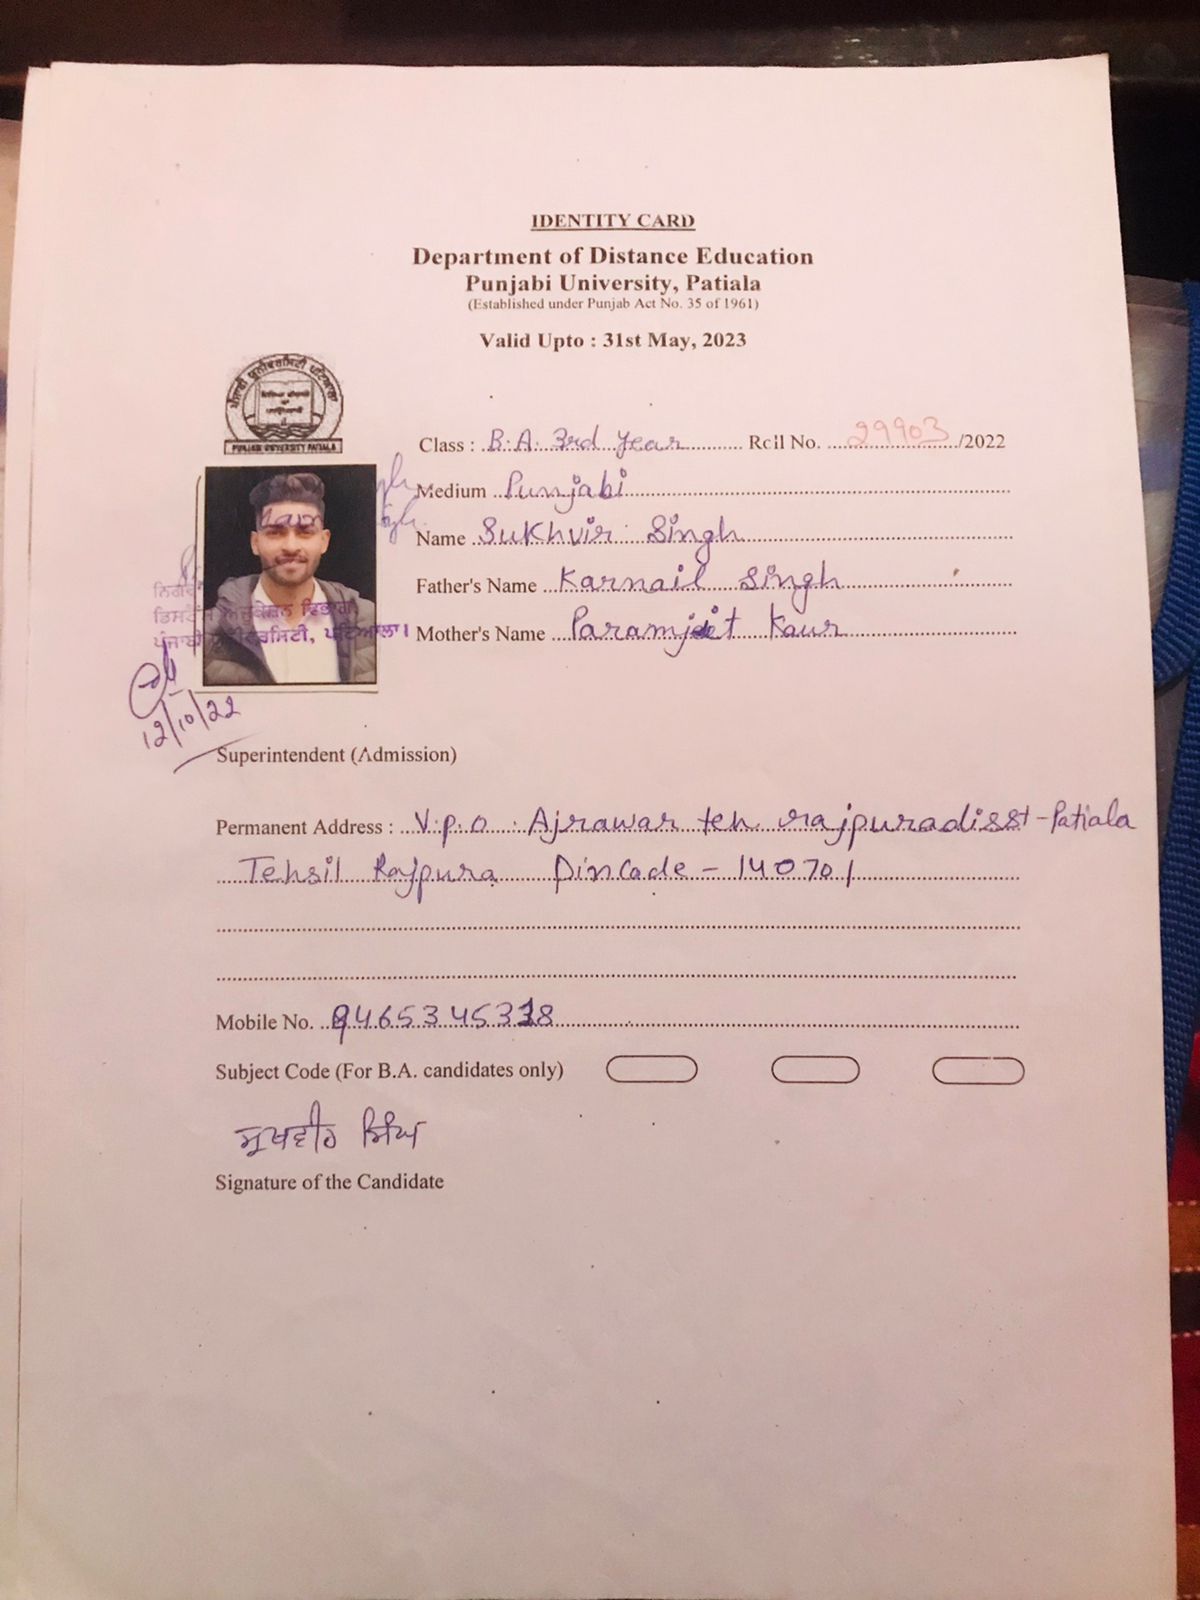 IDENTITY CARD
Department of Distance Education
Punjabi University, Patiala
(Established under Punjab Act No. 35 of 1961)
Valid Upto : 31st May, 2023
ਪੰਜਾਬੀ ਯੂਨੀਵਰਸਿਟੀ ਪਟਿਆਲਾ
PUNJABI UNIVERSITY PATIALA
Class : B.A. 3rd Year Roll No. 29903 /2022
Medium Punjabi
Name Sukhvir Singh
Father's Name Karnail Singh
Mother's Name Paramjeet Kaur
ਡਿਸਟੈਂਸ ਐਜੂਕੇਸ਼ਨ ਵਿਭਾਗ,
ਪੰਜਾਬੀ ਯੂਨੀਵਰਸਿਟੀ, ਪਟਿਆਲਾ।
12/10/22
Superintendent (Admission)
Permanent Address : V.p.o. Ajrawar teh. rajpura disst - Patiala
Tehsil Rajpura Pincode - 140701
Mobile No. 9465345318
Subject Code (For B.A. candidates only)
ਸੁਖਵੀਰ ਸਿੰਘ
Signature of the Candidate